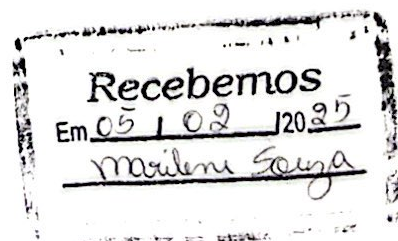 Recebemos
Em 05 / 02 /2025
Marilene Souza